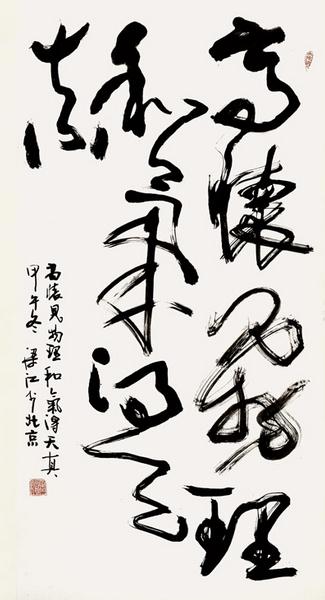 高懷見物理
和氣得天
真
高懷見物理和氣得天真
甲午冬 梁江 北京